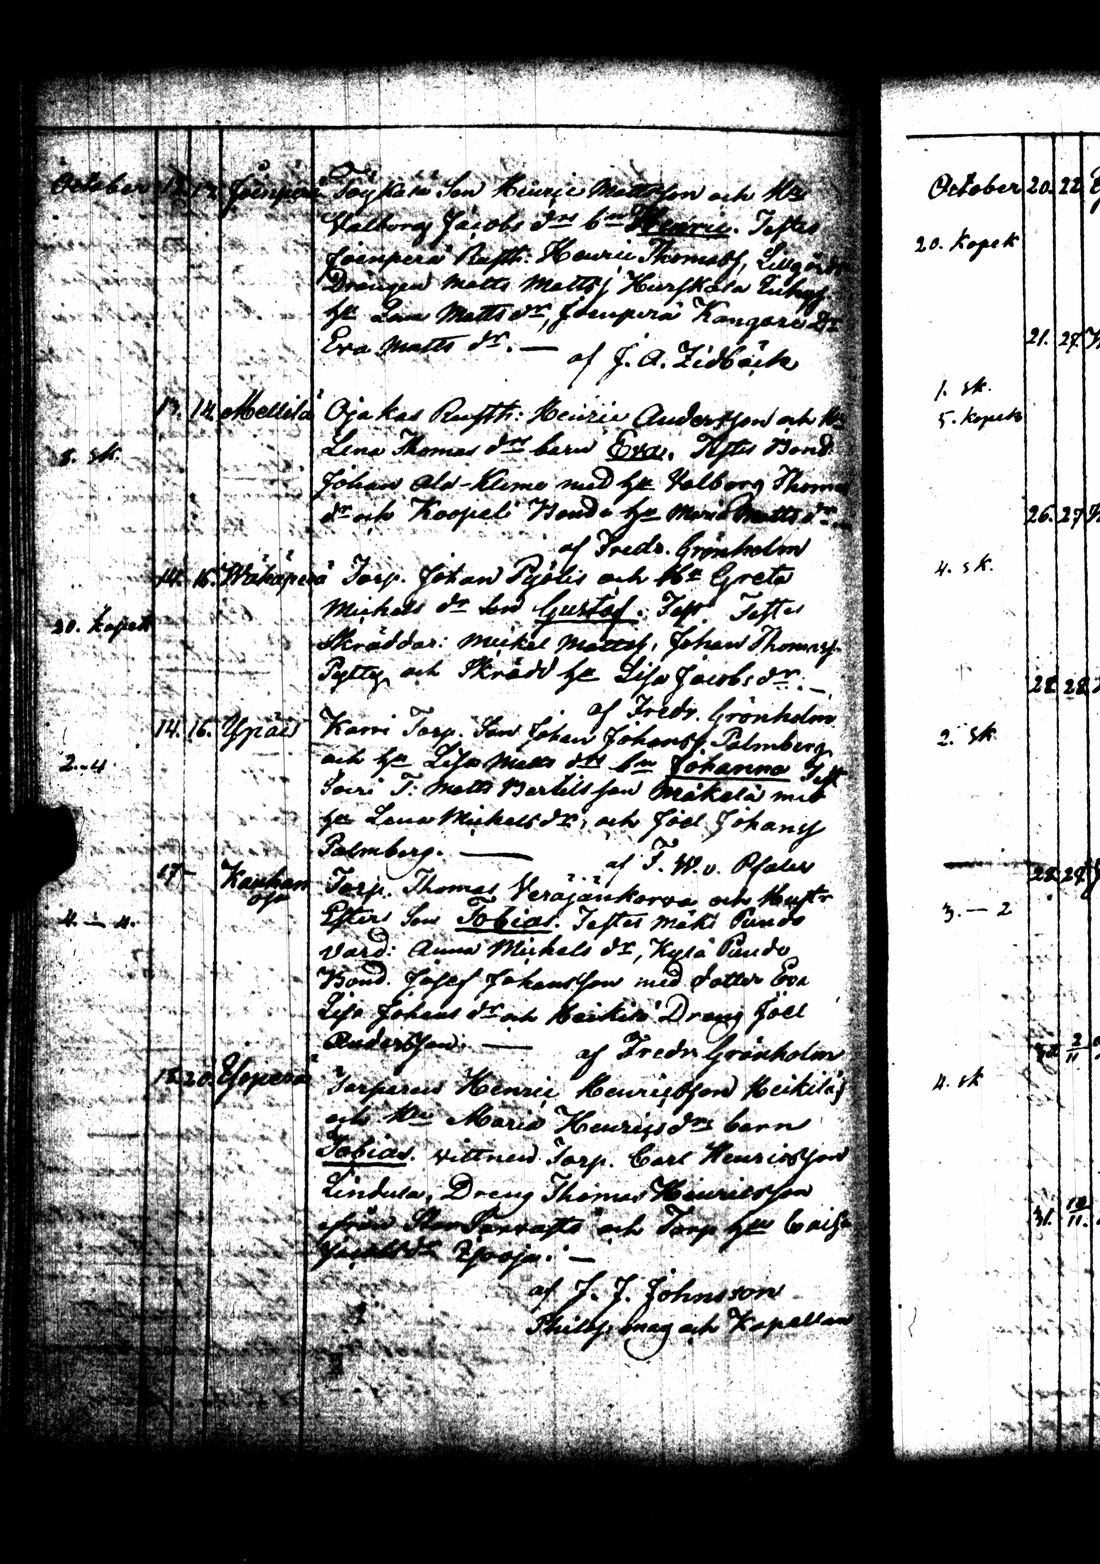 October 12. 13. Joenperä Töykälä Son Henric Mattsson och Hu
Valborg Jacobs drs bn Henric. Testes
Joenperä Rusth: Henric Thomass,
Drängen Matts Mattss Hurskala
hu Lena Matts dr, Joenperä Kangare
Eva Matts dr. —
af J. A. Zidbäck
13. 14. Mellilä Ojakas Rusth: Henric Andersson och Hu
8. sk. Lena Thomas drs barn Eva. Testes Bond.
Johan Ala-Klemo med hu Valborg Thomas
dr och Koopeli Bonde hu Maria Matts dr
af Fredr. Grönholm
14. 16. Wähäperä Torp. Johan Pyölis och Hu Greta
20. kopek Michels dr Son Gustaf. Testes
Skräddar: Mickel Mattss, Johan Thomass
Pytty och Skrädd hu Lisa Jacobs dr. —
af Fredr. Grönholm
14. 16. Ypäis Karri Torp. Son Johan Johanss Palmberg
2.-4 och hu Lisa Matts drs bn Johanna Test
Soiri T: Matts Bertilsson Mäkelä med
hu Lena Michels dr, och Joel Johanss
Palmberg. —
af F. W. v. Pfaler
17 - Kauhanoja Torp. Thomas Veräjänkorva och Hustr
4. — 4. Esters Son Tobias. Testes Mäki Pundo
värd: Anna Michels dr, Kylä Pundo
Bond. Josef Johansson med dotter Eva
Lisa Johans dr och Heikilä Dreng Joel
Andersson. —
af Fredr Grönholm
18. 20. Yloperä Torparen Henric Henricsson Heikiläs
och Hu Maria Henrics drs barn
Tobias. vittnen Torp. Carl Henricsson
Lindula, Dreng Thomas Henricsson
ifrån och Torp hu Caisa
af J. J. Johnsson
Philos. mag och Kapellan
October 20. 22.
20. kopek
21. 27.
1. sk.
5. kopek
26. 27
4. sk.
28. 28.
2. sk
28. 29.
3. — 2
30. 2/11
4. sk
31. 10/11.